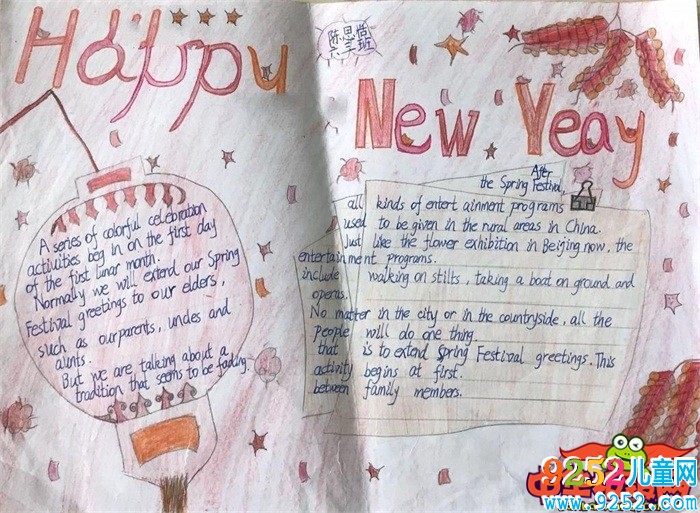 Happy
陈思尚
六三班
New Yeay
A series of colorful celebration
activities beg in on the first day
of the first lunar month.
Normally we will extend our Spring
Festival greetings to our elders,
such as ourparents, uncles and
aunts.
But we are talking about a
tradition that seems to be fading.
After
the Spring Festival,
all kinds of entert ainment programs
used to be given in the rural areas in China.
Just like the flower exhibition in Beijing now, the
entertainment programs.
include walking on stilts, taking a boat on ground and
operas.
No matter in the city or in the countryside, all the
people will do one thing
that is to extend Spring Festival greetings. This
activity begins at first.
between family members.
9252儿童网
www.9252.com